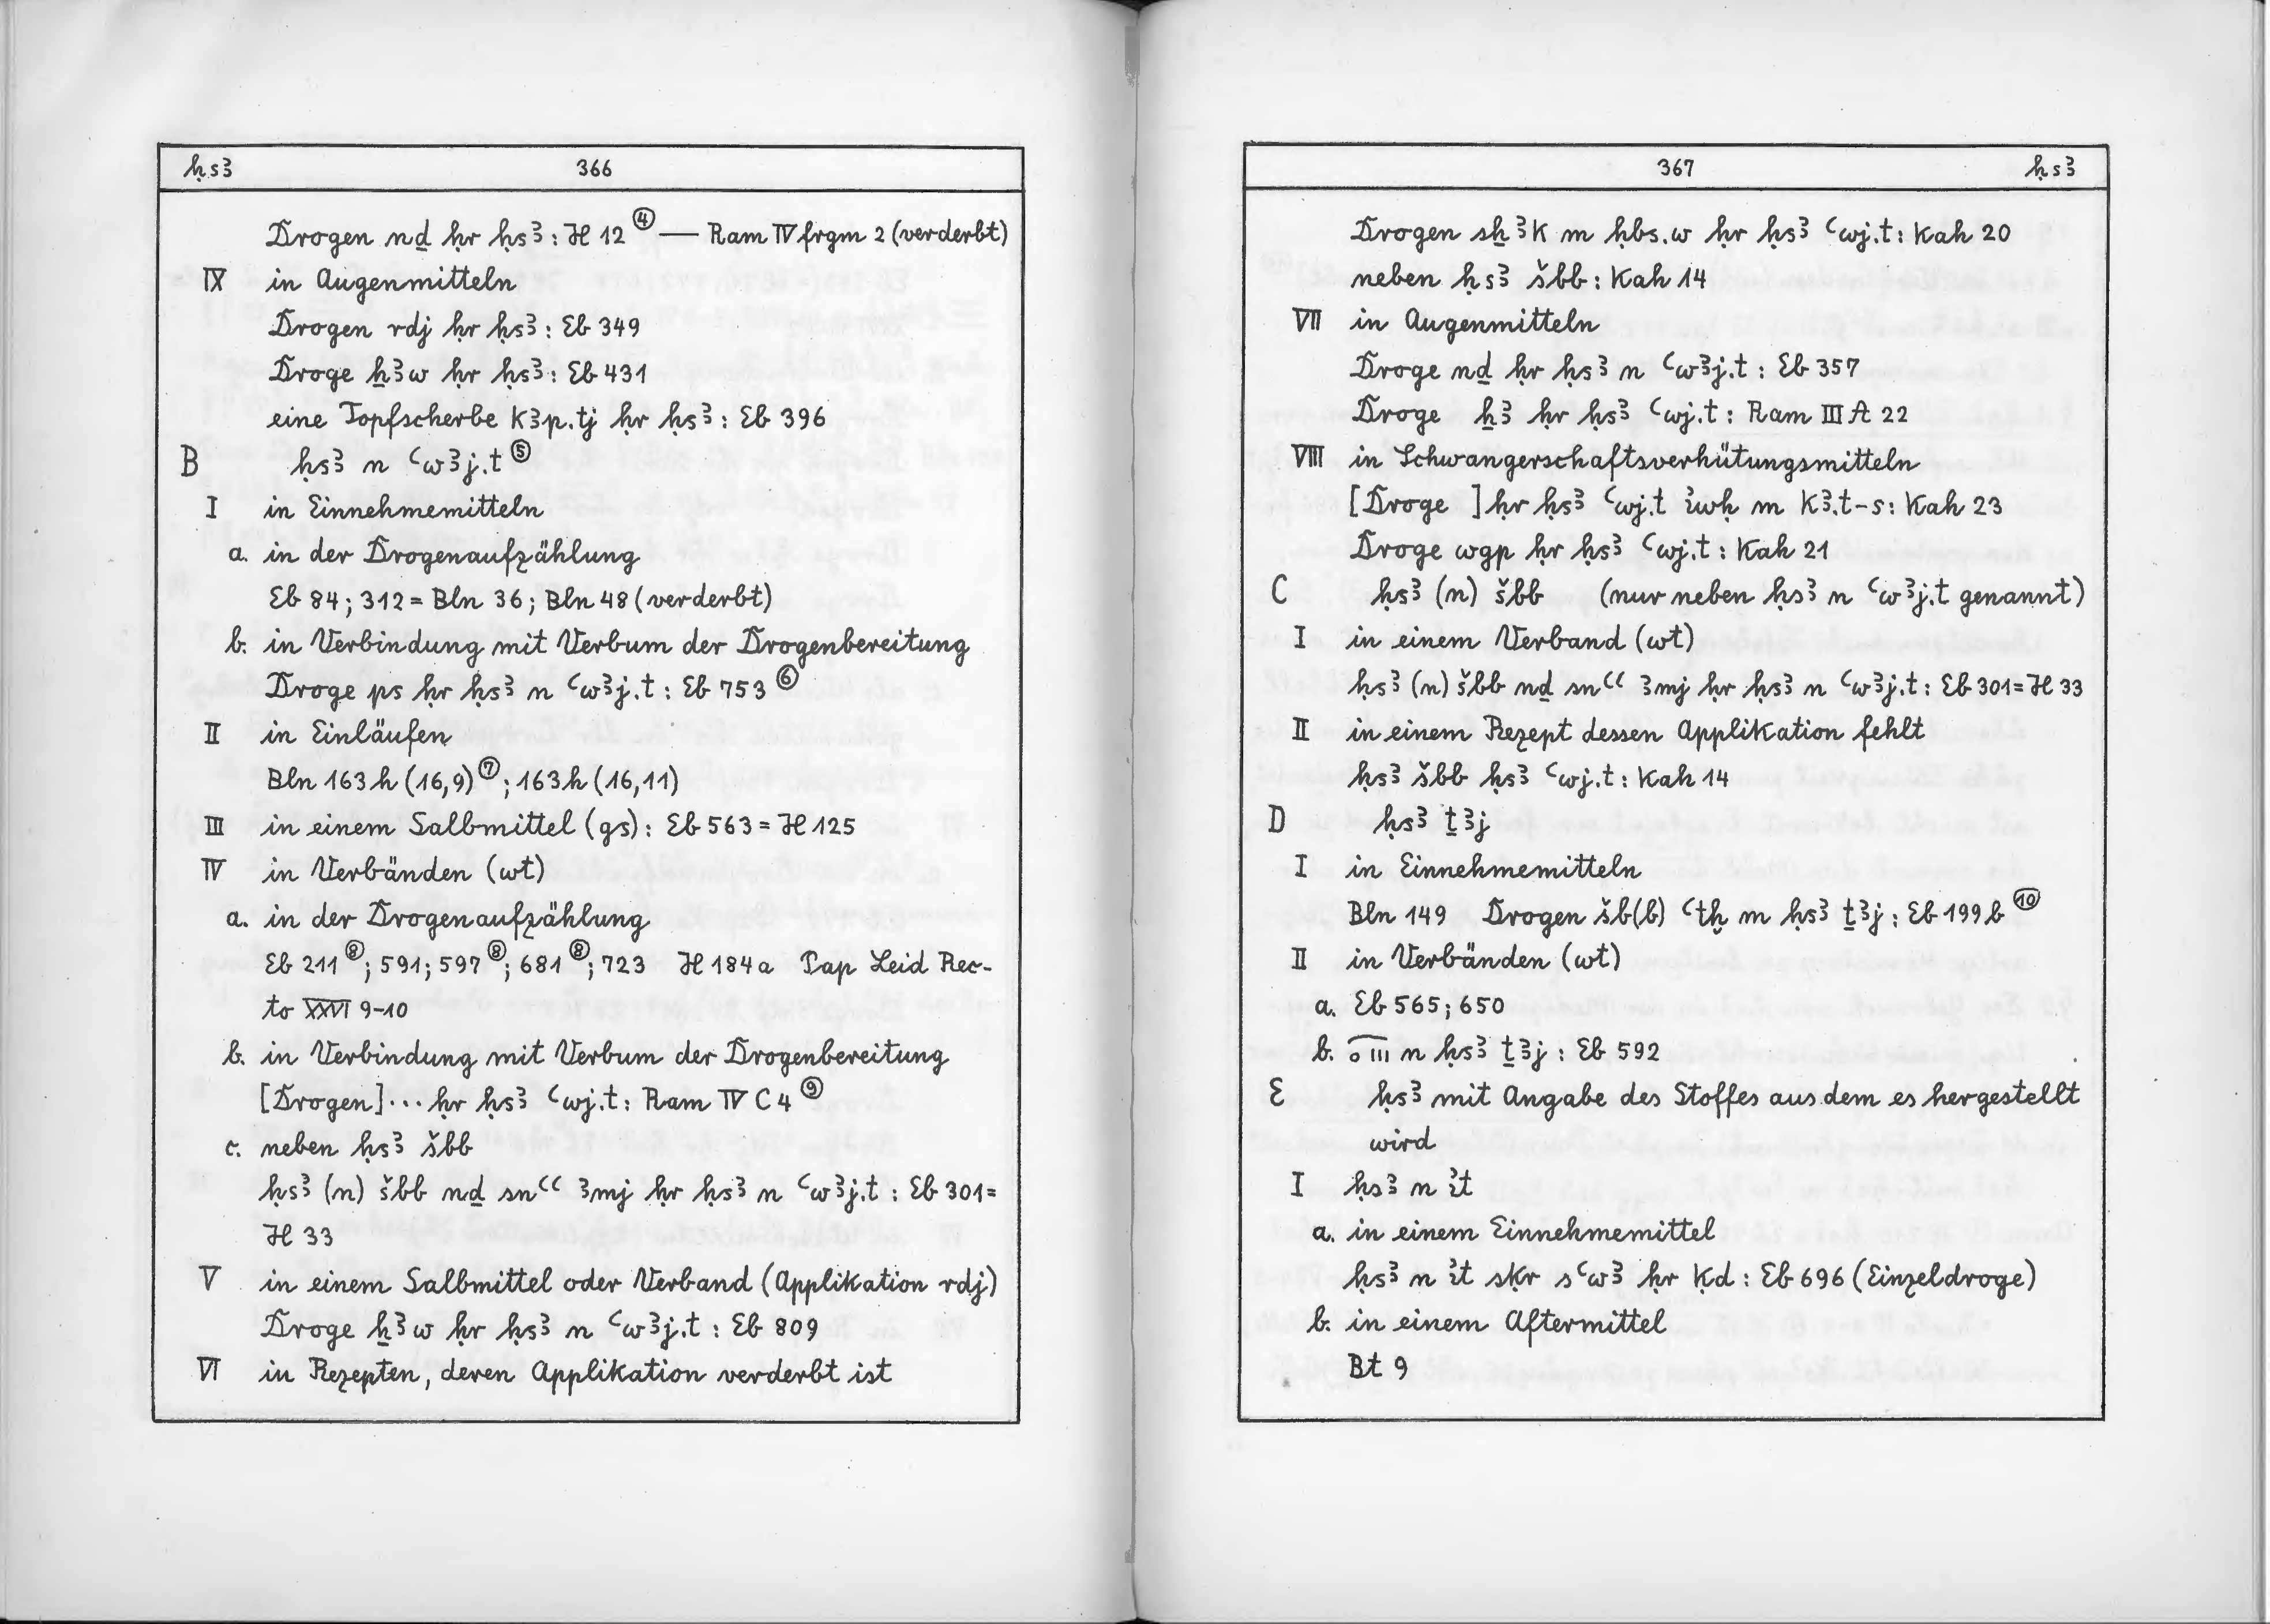 ḥsꜣ 366
Drogen nḏ ḥr ḥsꜣ : H 12 ④ — Ram IV frgm 2 (verderbt)
IX in Augenmitteln
Drogen rdj ḥr ḥsꜣ : Eb 349
Droge ẖꜣw ḥr ḥsꜣ : Eb 431
eine Topfscherbe kꜣp.tj ḥr ḥsꜣ : Eb 396
B ḥsꜣ n ꜥwꜣj.t ⑤
I in Einnehmemitteln
a. in der Drogenaufzählung
Eb 84 ; 312 = Bln 36 ; Bln 48 (verderbt)
b. in Verbindung mit Verbum der Drogenbereitung
Droge ps ḥr ḥsꜣ n ꜥwꜣj.t : Eb 753 ⑥
II in Einläufen
Bln 163 h (16,9) ⑦ ; 163 h (16,11)
III in einem Salbmittel (gs) : Eb 563 = H 125
IV in Verbänden (wt)
a. in der Drogenaufzählung
Eb 211 ⑧ ; 591 ; 597 ⑧ ; 681 ⑧ ; 723 H 184 a Pap Leid Rec-
to XXVI 9-10
b. in Verbindung mit Verbum der Drogenbereitung
[Drogen] ... ḥr ḥsꜣ ꜥwj.t : Ram IV C 4 ⑨
c. neben ḥsꜣ šbb
ḥsꜣ (n) šbb nḏ snꜥꜥ ꜣmj ḥr ḥsꜣ n ꜥwꜣj.t : Eb 301 =
H 33
V in einem Salbmittel oder Verband (Applikation rdj)
Droge ẖꜣw ḥr ḥsꜣ n ꜥwꜣj.t : Eb 809
VI in Rezepten, deren Applikation verderbt ist
367 ḥsꜣ
Drogen sẖꜣk m ḥbs.w ḥr ḥsꜣ ꜥwj.t : Kah 20
neben ḥsꜣ šbb : Kah 14
VII in Augenmitteln
Droge nḏ ḥr ḥsꜣ n ꜥwꜣj.t : Eb 357
Droge ẖꜣ ḥr ḥsꜣ ꜥwj.t : Ram III A 22
VIII in Schwangerschaftsverhütungsmitteln
[Droge ] ḥr ḥsꜣ ꜥwj.t ꞽwḥ m kꜣ.t-s : Kah 23
Droge wgp ḥr ḥsꜣ ꜥwj.t : Kah 21
C ḥsꜣ (n) šbb (nur neben ḥsꜣ n ꜥwꜣj.t genannt)
I in einem Verband (wt)
ḥsꜣ (n) šbb nḏ snꜥꜥ ꜣmj ḥr ḥsꜣ n ꜥwꜣj.t : Eb 301 = H 33
II in einem Rezept dessen Applikation fehlt
ḥsꜣ šbb ḥsꜣ ꜥwj.t : Kah 14
D ḥsꜣ ṯꜣj
I in Einnehmemitteln
Bln 149 Drogen šb(b) ꜥtḫ m ḥsꜣ ṯꜣj : Eb 199 b ⑩
II in Verbänden (wt)
a. Eb 565 ; 650
b. o III n ḥsꜣ ṯꜣj : Eb 592
E ḥsꜣ mit Angabe des Stoffes aus dem es hergestellt
wird
I ḥsꜣ n ꞽt
a. in einem Einnehmemittel
ḥsꜣ n ꞽt sḳr sꜥwꜣ ḥr ḳd : Eb 696 (Einzeldroge)
b. in einem Aftermittel
Bt 9